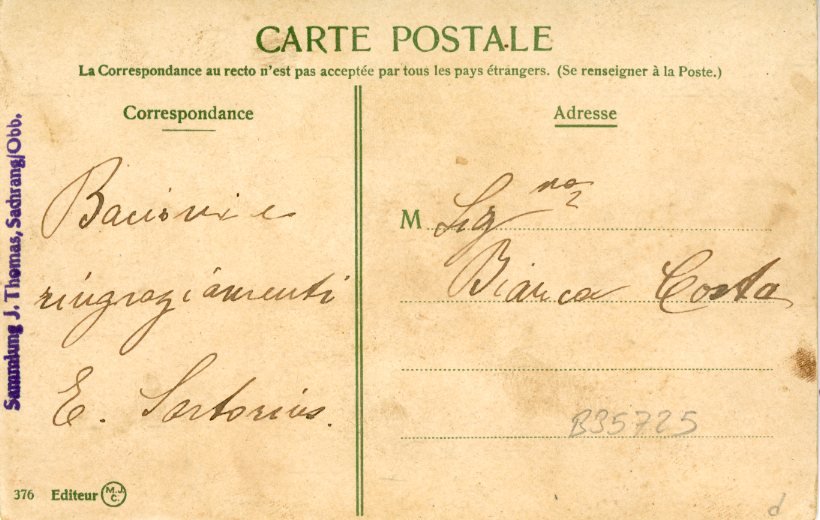 CARTE POSTALE
La Correspondance au recto n'est pas acceptée par tous les pays étrangers. (Se renseigner à la Poste.)
Correspondance
Bacioni e
ringraziamenti
E. Sartorius.
Adresse
M Sig na
Bianca Costa
B35725
d
376 Editeur M.J.C.
Sammlung J. Thomas, Sachrang/Obb.